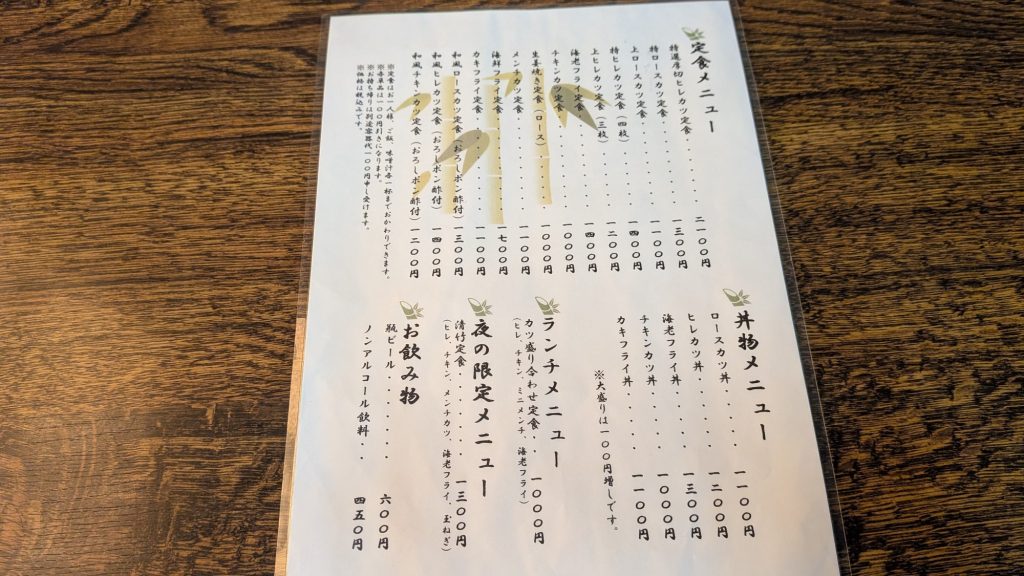 定食メニュー
特選厚切ヒレカツ定食・・・・・二一〇〇円
特ロースカツ定食・・・・・・・一三〇〇円
上ロースカツ定食・・・・・・・一一〇〇円
特ヒレカツ定食(四枚)・・・・・一四〇〇円
上ヒレカツ定食(三枚)・・・・・一二〇〇円
海老フライ定食・・・・・・・・一四〇〇円
チキンカツ定食・・・・・・・・一〇〇〇円
生姜焼き定食(ロース)・・・・・一〇〇〇円
メンチカツ定食・・・・・・・・一一〇〇円
海鮮フライ定食・・・・・・・・一七〇〇円
カキフライ定食・・・・・・・・一一〇〇円
和風ロースカツ定食(おろしポン酢付)一三〇〇円
和風ヒレカツ定食(おろしポン酢付)一四〇〇円
和風チキンカツ定食(おろしポン酢付)一二〇〇円
※定食はお一人様、ご飯、味噌汁各一杯までおかわりできます。
※各単品は一〇〇円引きになります。
※お持ち帰りは別途容器代一〇〇円申し受けます。
※価格は税込みです。
丼物メニュー
ロースカツ丼・・・・一一〇〇円
ヒレカツ丼・・・・・一二〇〇円
海老フライ丼・・・・一三〇〇円
チキンカツ丼・・・・一〇〇〇円
カキフライ丼・・・・一一〇〇円
※大盛りは一〇〇円増しです。
ランチメニュー
カツ盛り合わせ定食・・一〇〇〇円
(ヒレ、チキン、ミニメンチ、海老フライ)
夜の限定メニュー
清竹定食・・・・・・一三〇〇円
(ヒレ、チキン、メンチカツ、海老フライ、玉ねぎ)
お飲み物
瓶ビール・・・・・・六〇〇円
ノンアルコール飲料・・四五〇円